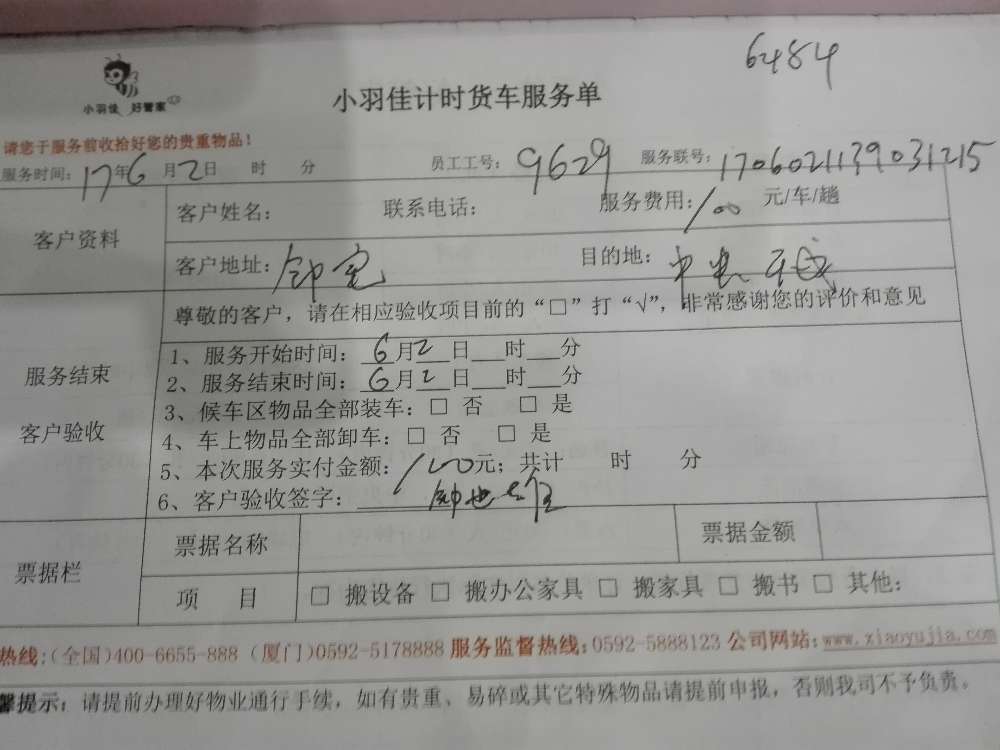 6484
小羽佳 好管家
小羽佳计时货车服务单
请您于服务前收拾好您的贵重物品！
服务时间：17年6月2日 时 分 员工工号：9629 服务联号：1706021139031215
客户资料
客户姓名： 联系电话： 服务费用：100 元/车/趟
客户地址： 目的地：
服务结束
客户验收
尊敬的客户，请在相应验收项目前的“□”打“√”，非常感谢您的评价和意见
1、服务开始时间：6月2日___时___分
2、服务结束时间：6月2日___时___分
3、候车区物品全部装车：□ 否 □ 是
4、车上物品全部卸车：□ 否 □ 是
5、本次服务实付金额：100元；共计 时 分
6、客户验收签字：
票据栏
票据名称 票据金额
项 目 □ 搬设备 □ 搬办公家具 □ 搬家具 □ 搬书 □ 其他：
热线：(全国)400-6655-888（厦门)0592-5178888 服务监督热线：0592-5888123 公司网站：www.xiaoyujia.com
馨提示：请提前办理好物业通行手续，如有贵重、易碎或其它特殊物品请提前申报，否则我司不予负责。